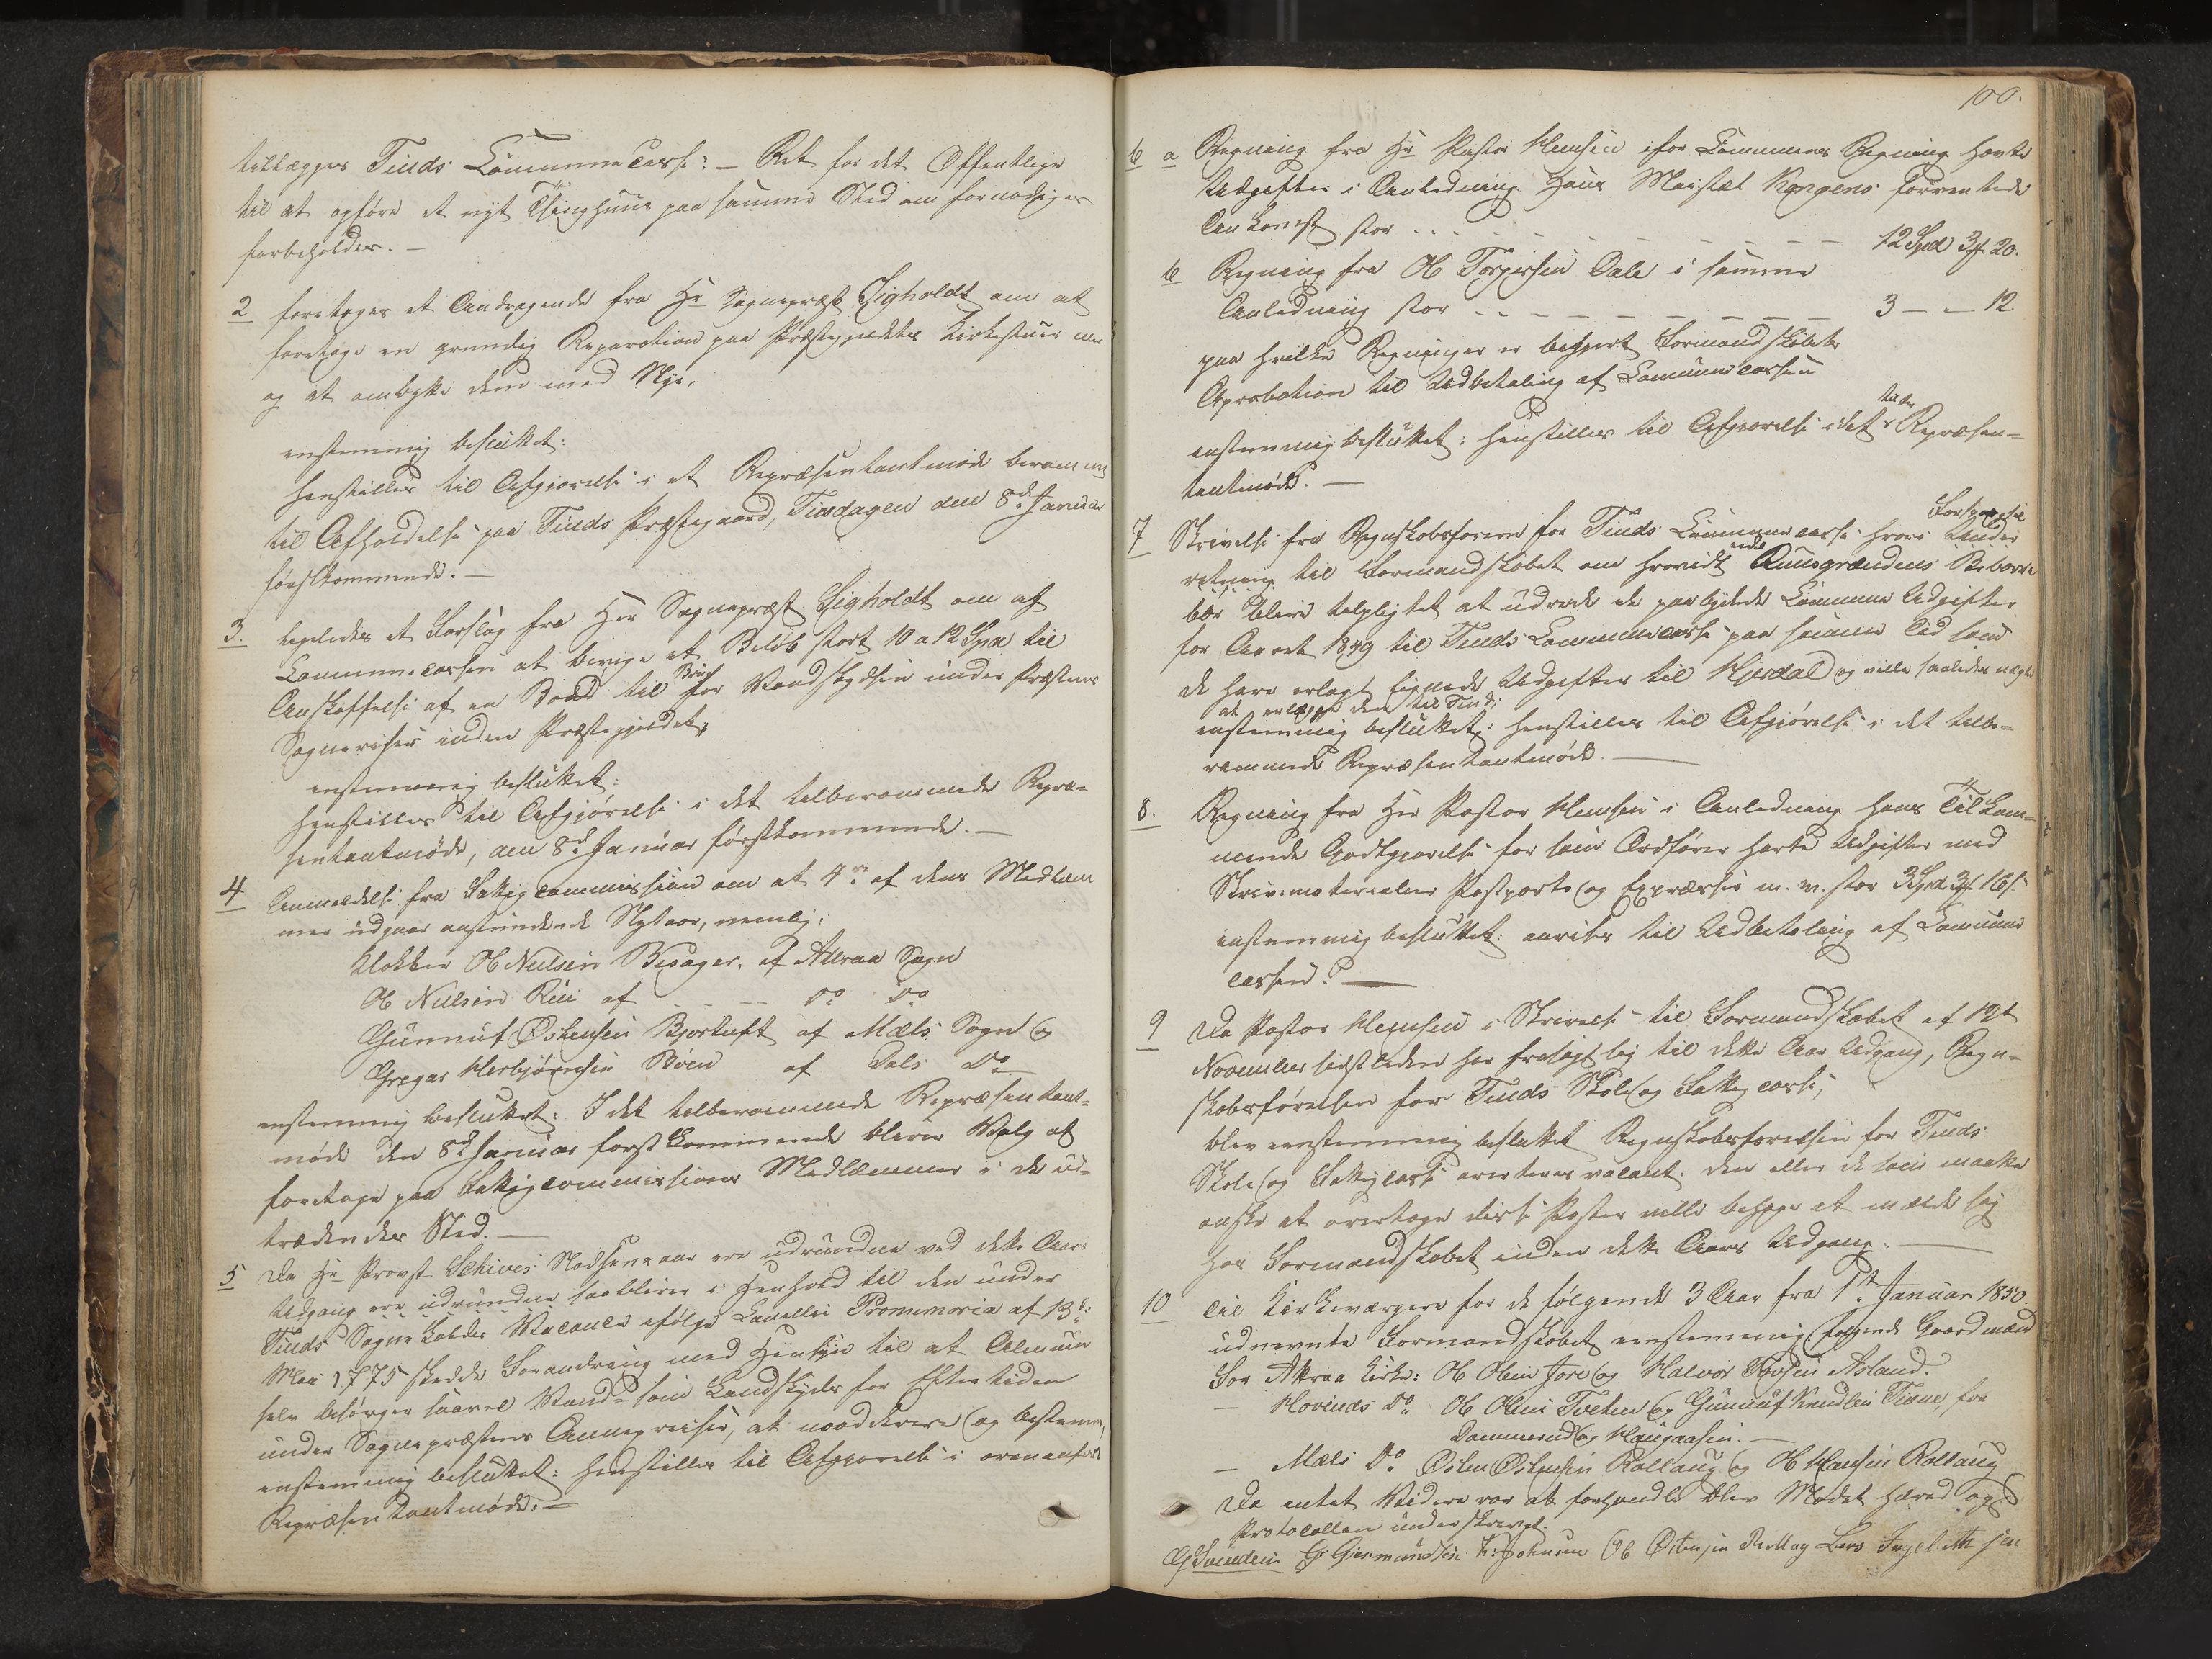 tillægges Tinds Communecasse: – Ret for det Offentlige
til at opføre et nyt Thinghuus paa samme Sted om fornødiges
forbeholdes. –
2 foretoges et Andragende fra Hr Sognepræst Ligholdt om at
foretage en grundig Reparation paa Præstegjeldets Kirkestuer
og at ombytte dem med Nye,
enstemmig besluttet:
henstilles til Afgjørelse i et Repræsentantmøde berammet
til Afholdelse paa Tinds Præstegaard, Tirsdagen den 8de Januar
førstkommende. –
3. ligeledes et Forslag fra Her Sognepræst Ligholdt om af
Communecassen at bevige et Beløb stort 10 a 12 Spd til
Anskaffelse af en Baad til Brug for Vandskydsen under Præstens
Sognereiser inden Præstegjeldet,
enstemmig besluttet:
henstilles til Afgjørelse i det telberammede Repræ-
sentantmøde, den 8de Januar førstkommende. –
4 Anmeldelse fra Fattigcommissionen om at 4re af dens Medlem-
mer udgaar anstundende Nytaar, nemlig:
Klokker Ole Nielsen Besager, af Attraa Sogn
Ole Nielsen Rui af – – – Do Do
Gunnuf Østensen Bjortuft af Mæls Sogn og
Gregar Herbjørnsen Bøen af Dals Do
enstemmig besluttet: I det telberammede Repræsentant-
møde den 8de Januar førstkommende bliver Valg at
foretage paa Fattigcommissions Medlemmer i de ud-
trædendes Sted. –
5 Da Hr Provst Schives Nadsensaar ere udrundne ved dette Aars
Udgang ere udrundne saa bliver i Henhold til den under
Tinds Sognekalds Vacance ifølge Cancellie Prommoria af 13de
Mai 1775 skedde Forandring med Hensyn til at Almuen
selv besørger saavel Vand- som Landskyds for Eftertiden
under Sognepræstens Annexreiser, at vordere og bestemme,
enstemmig besluttet: henstilles til Afgjørelse i ovenanførte
Repræsentantmøde. –
100.
6 a Regning fra Hr Pastor Hemsen for Communens Regning havte
Udgifter i Anledning Hans Maistæt Kongens forventede
Ankomst stor – – – 12 Spd 3 ƒ 20.
b Regning fra Ole Torgersen Dale i samme
Anledning stor – – – 3 – – 12
paa hvilke Regninger er begjert Formandskabets
Aprobation til Udbetaling af Communecassen
enstemmig besluttet: henstilles til Afgjørelse i det telbe Repræsen-
tantmøde. –
7 Skrivelse fra Regnskabsføreren for Tinds Communecasse hvori Forspørgsel
Under
retning til Formandskabet om hvorvidt Auusgrændens Beboere
bør blive telpligtet at udrede de paabydede Commune Udgifter
for Aaret 1849 til Tinds Communecasse paa samme Tid som
de have erlagt lignede Udgifter til Hjerdal og ville saaledes nægte
at erlægge dem til Tind;
enstemmig besluttet: henstilles til Afgjørelse i det telbe-
rammede Repræsentantmøde. –
8. Regning fra Her Pastor Hemsen i Anledning hans Tilkom-
mende Godtgjørelse for som Ordfører havte Udgifter med
Skrivematerialer Postporto og Expræsser m. v. stor 3 Spd 3 ƒ 16 s.
enstemmig besluttet: anvises til Udbetaling af Commune
cassen. –
9 Da Pastor Hemsen i Skrivelse til Formandskabet af 12t
November sidstleden har frasagt sig til dette Aars Udgang, Regn-
skabsførelsen for Tinds Skole og Fattigcasse,
blev eenstemmig besluttet Regnskabsførelsen for Tinds
Skole og Fattigcasse averteres vacant. Den eller de som maatte
ønske at overtage disse Poster ville behage at melde sig
hos Formandskabet inden dette Aars Udgang. –
10 Til Kirkeværgere for de følgende 3 Aar fra 1ste Januar 1850.
udnevnte Formandskabet eenstemmig følgende Gaardmænd
For Attraa Kirke: Ole Olsen Jore og Halvor Torsen Asland.
– Hovinds Do Ole Olsen Tveten og Gunnuf Knudsen Tisne, for
Dammerud og Haugaasen. –
– Mæls Do Østen Østensen Rollaug og Ole Hansen Rollaug
Da entet Videre var at forhandle blev Mødet hævet og
Protocollen underskrevet.
G Svenden G. Giermundsen K: Johnsen Ole Østensen Lars Ingelbretsen